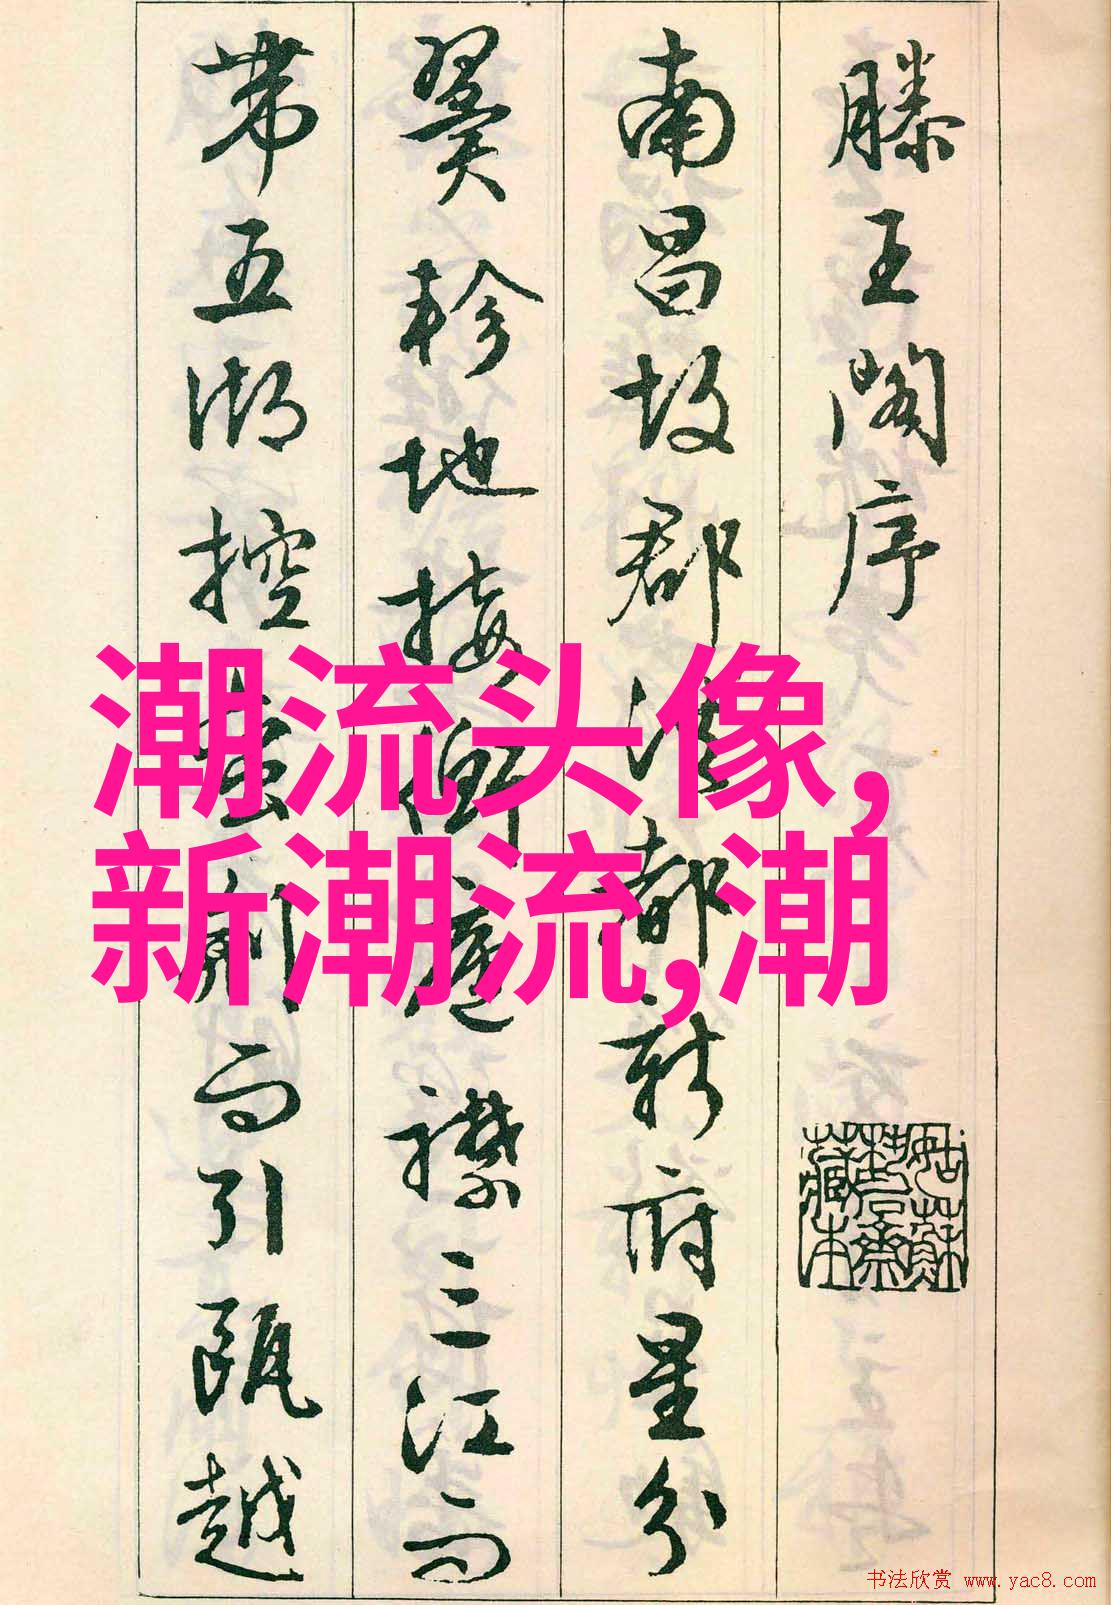 滕王閣序
南昌故郡洪都新府星分
翼軫地接衡廬襟三江而
帶五湖控蠻荆而引甌越
潮流头像,
新潮流,潮
姑蘇
藏本
书法欣赏 www.yac8.com